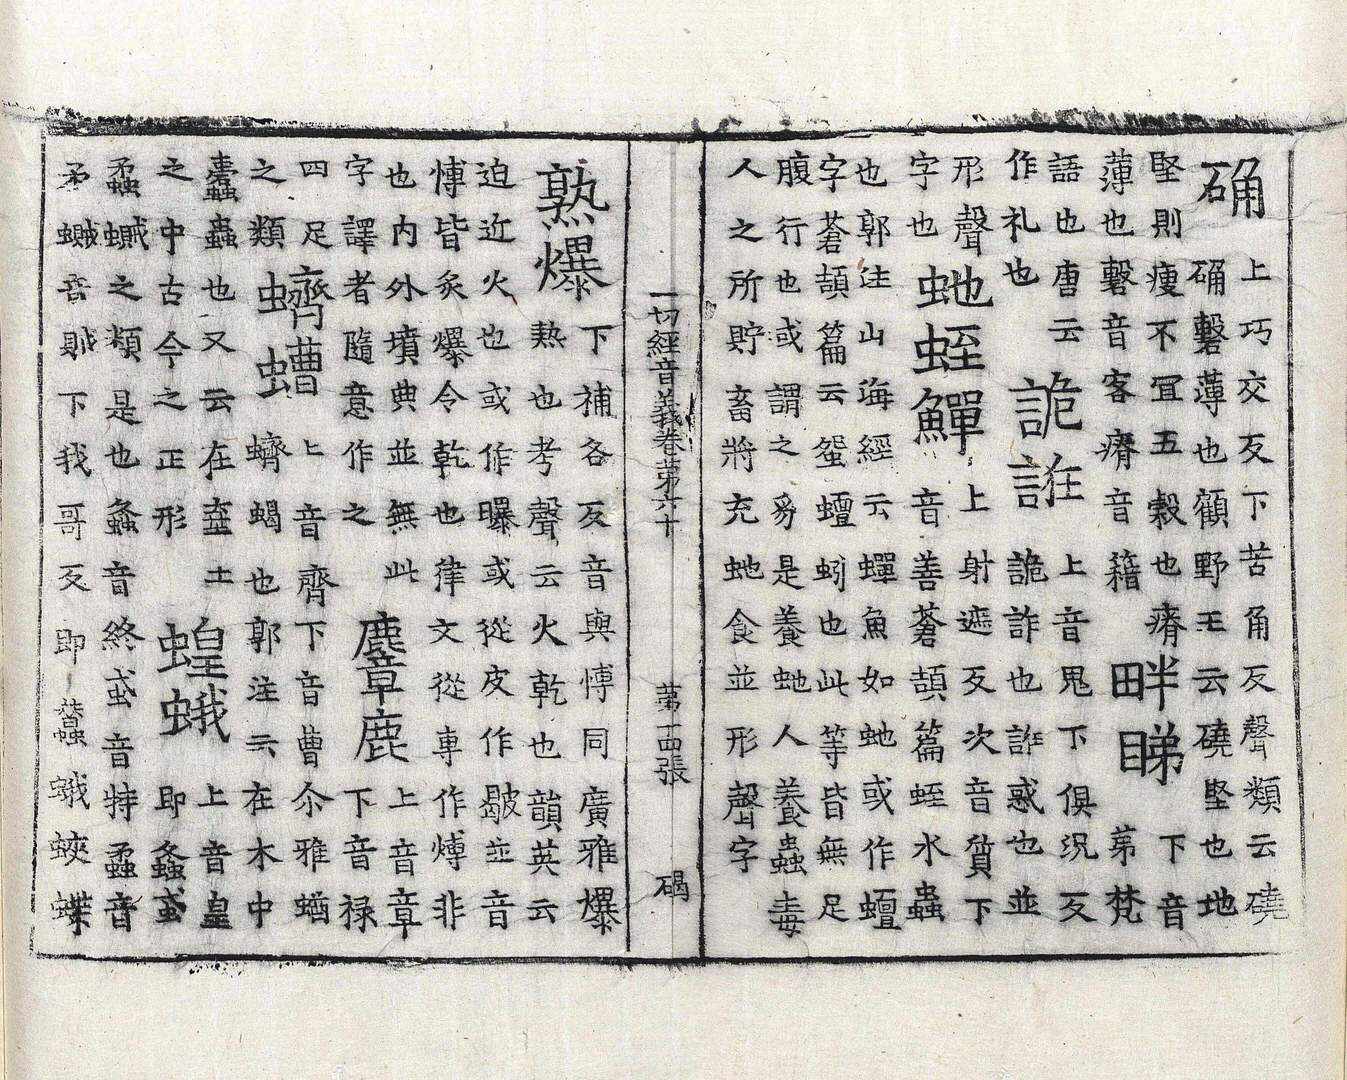 确 上巧交反下苦角反聲類云磽
确礊薄也顧野王云磽堅也地
堅則瘦不宜五穀也瘠
薄也礊音客瘠音籍 畔睇 下音
第梵
語也唐云 詭誑 上音鬼下俱況反
作礼也 詭詐也誑惑也並
形聲
字也 虵蛭鱓 上射遮反次音質下
音善蒼頡篇蛭水蟲
也郭注山海經云蟬魚如虵或作蟺
字蒼頡篇云蛩蟺蚓也此等皆無足
腹行也或謂之爲是養虵人養蟲毒
人之所貯畜將充虵食並形聲字
一切經音義卷苐六十 苐十四張 碣
熟爆 下補各反音與愽同廣雅爆
熱也考聲云火乾也韻英云
迫近火也或作曝或從皮作皷並音
愽皆炙爆令乾也律文從專作煿非
也內外墳典並無此
字譯者隨意作之 麞鹿 上音章
下音祿
四足
之類 蠐螬 上音齊下音曹尒雅蝤
蠐蝎也郭注云在木中
蠹蟲也又云在𡐨土
之中古今之正形 蝗蛾 上音皇
即螽䖵
蟊蠈之類是也螽音終䖵音特蟊音
矛蠈音賊下我哥反即蠶蛾蛺蝶